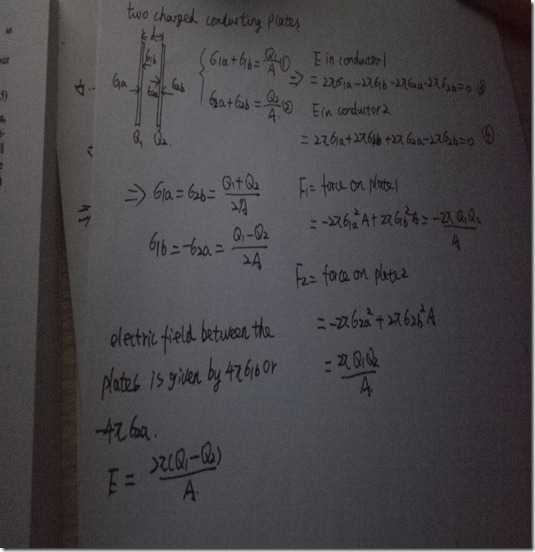 two charged conducting plates
d
σ1b
σ1a σ2a σ2b
Q1 Q2
σ1a+σ1b=Q1/A ①
σ2a+σ2b=Q2/A ②
⇒
E in conductor1
=2πσ1a-2πσ1b-2πσ2a-2πσ2b=0
E in conductor 2
=2πσ1a+2πσ1b+2πσ2a-2πσ2b=0
⇒ σ1a=σ2b=Q1+Q2/2A
σ1b=-σ2a=Q1-Q2/2A
F1= force on plate1
=-2πσ1a²A+2πσ1b²A=-2πQ1Q2/A
F2= force on plate2
=-2πσ2a²+2πσ2b²A
=2πQ1Q2/A
electric field between the
plates is given by 4πσ1b or
-4πσ2a.
E=2π(Q1-Q2)/A